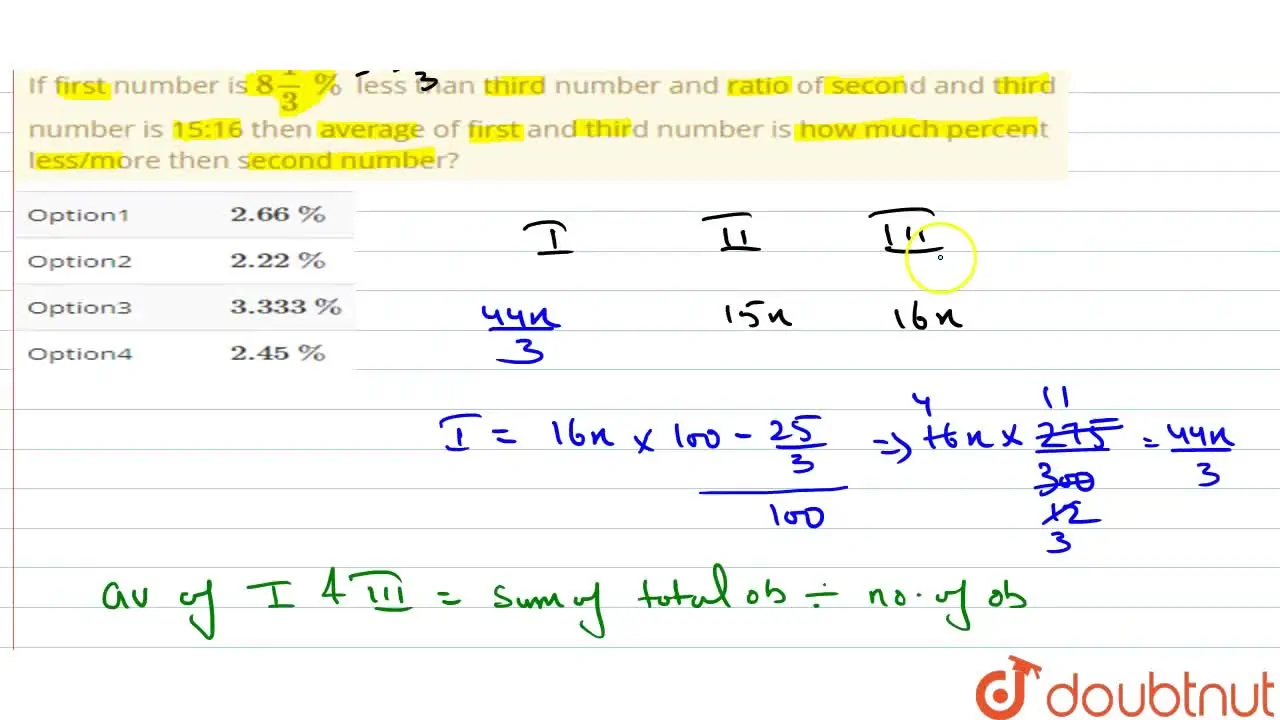 If first number is 8 1/3 % less than third number and ratio of second and third
number is 15:16 then average of first and third number is how much percent
less/more then second number?
Option1 2.66 %
Option2 2.22 %
Option3 3.333 %
Option4 2.45 %
I II III
44x/3 15x 16x
I = 16x × 100 - 25/3 / 100 => 4 16x × 11 275/300 12 3 = 44x/3
av of I & III = sum of total ob ÷ no. of ob
doubtnut